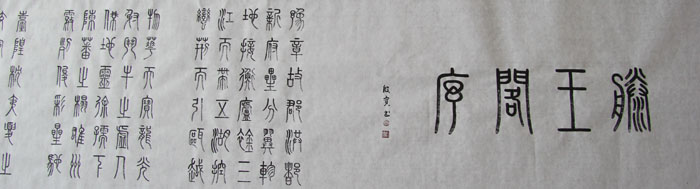 滕王閣序
豫章故郡洪都
新府星分翼軫
地接衡廬襟三
江而帶五湖控
蠻荊而引甌越
物華天寶龍光
射牛斗之墟人
傑地靈徐孺下
陳蕃之榻雄州
霧列俊彩星馳
臺隍枕夷夏之